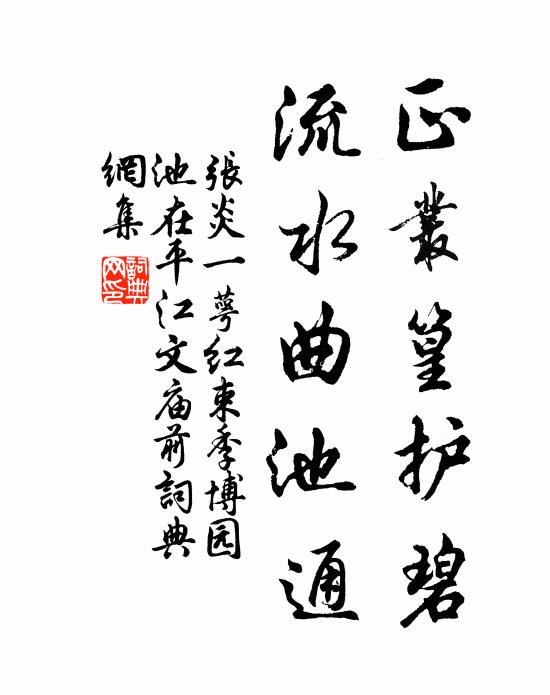 正叢篁护碧
流水曲池通
張炎一萼红束季博园
池在平江文庙前詞典
網集
詞典
网印